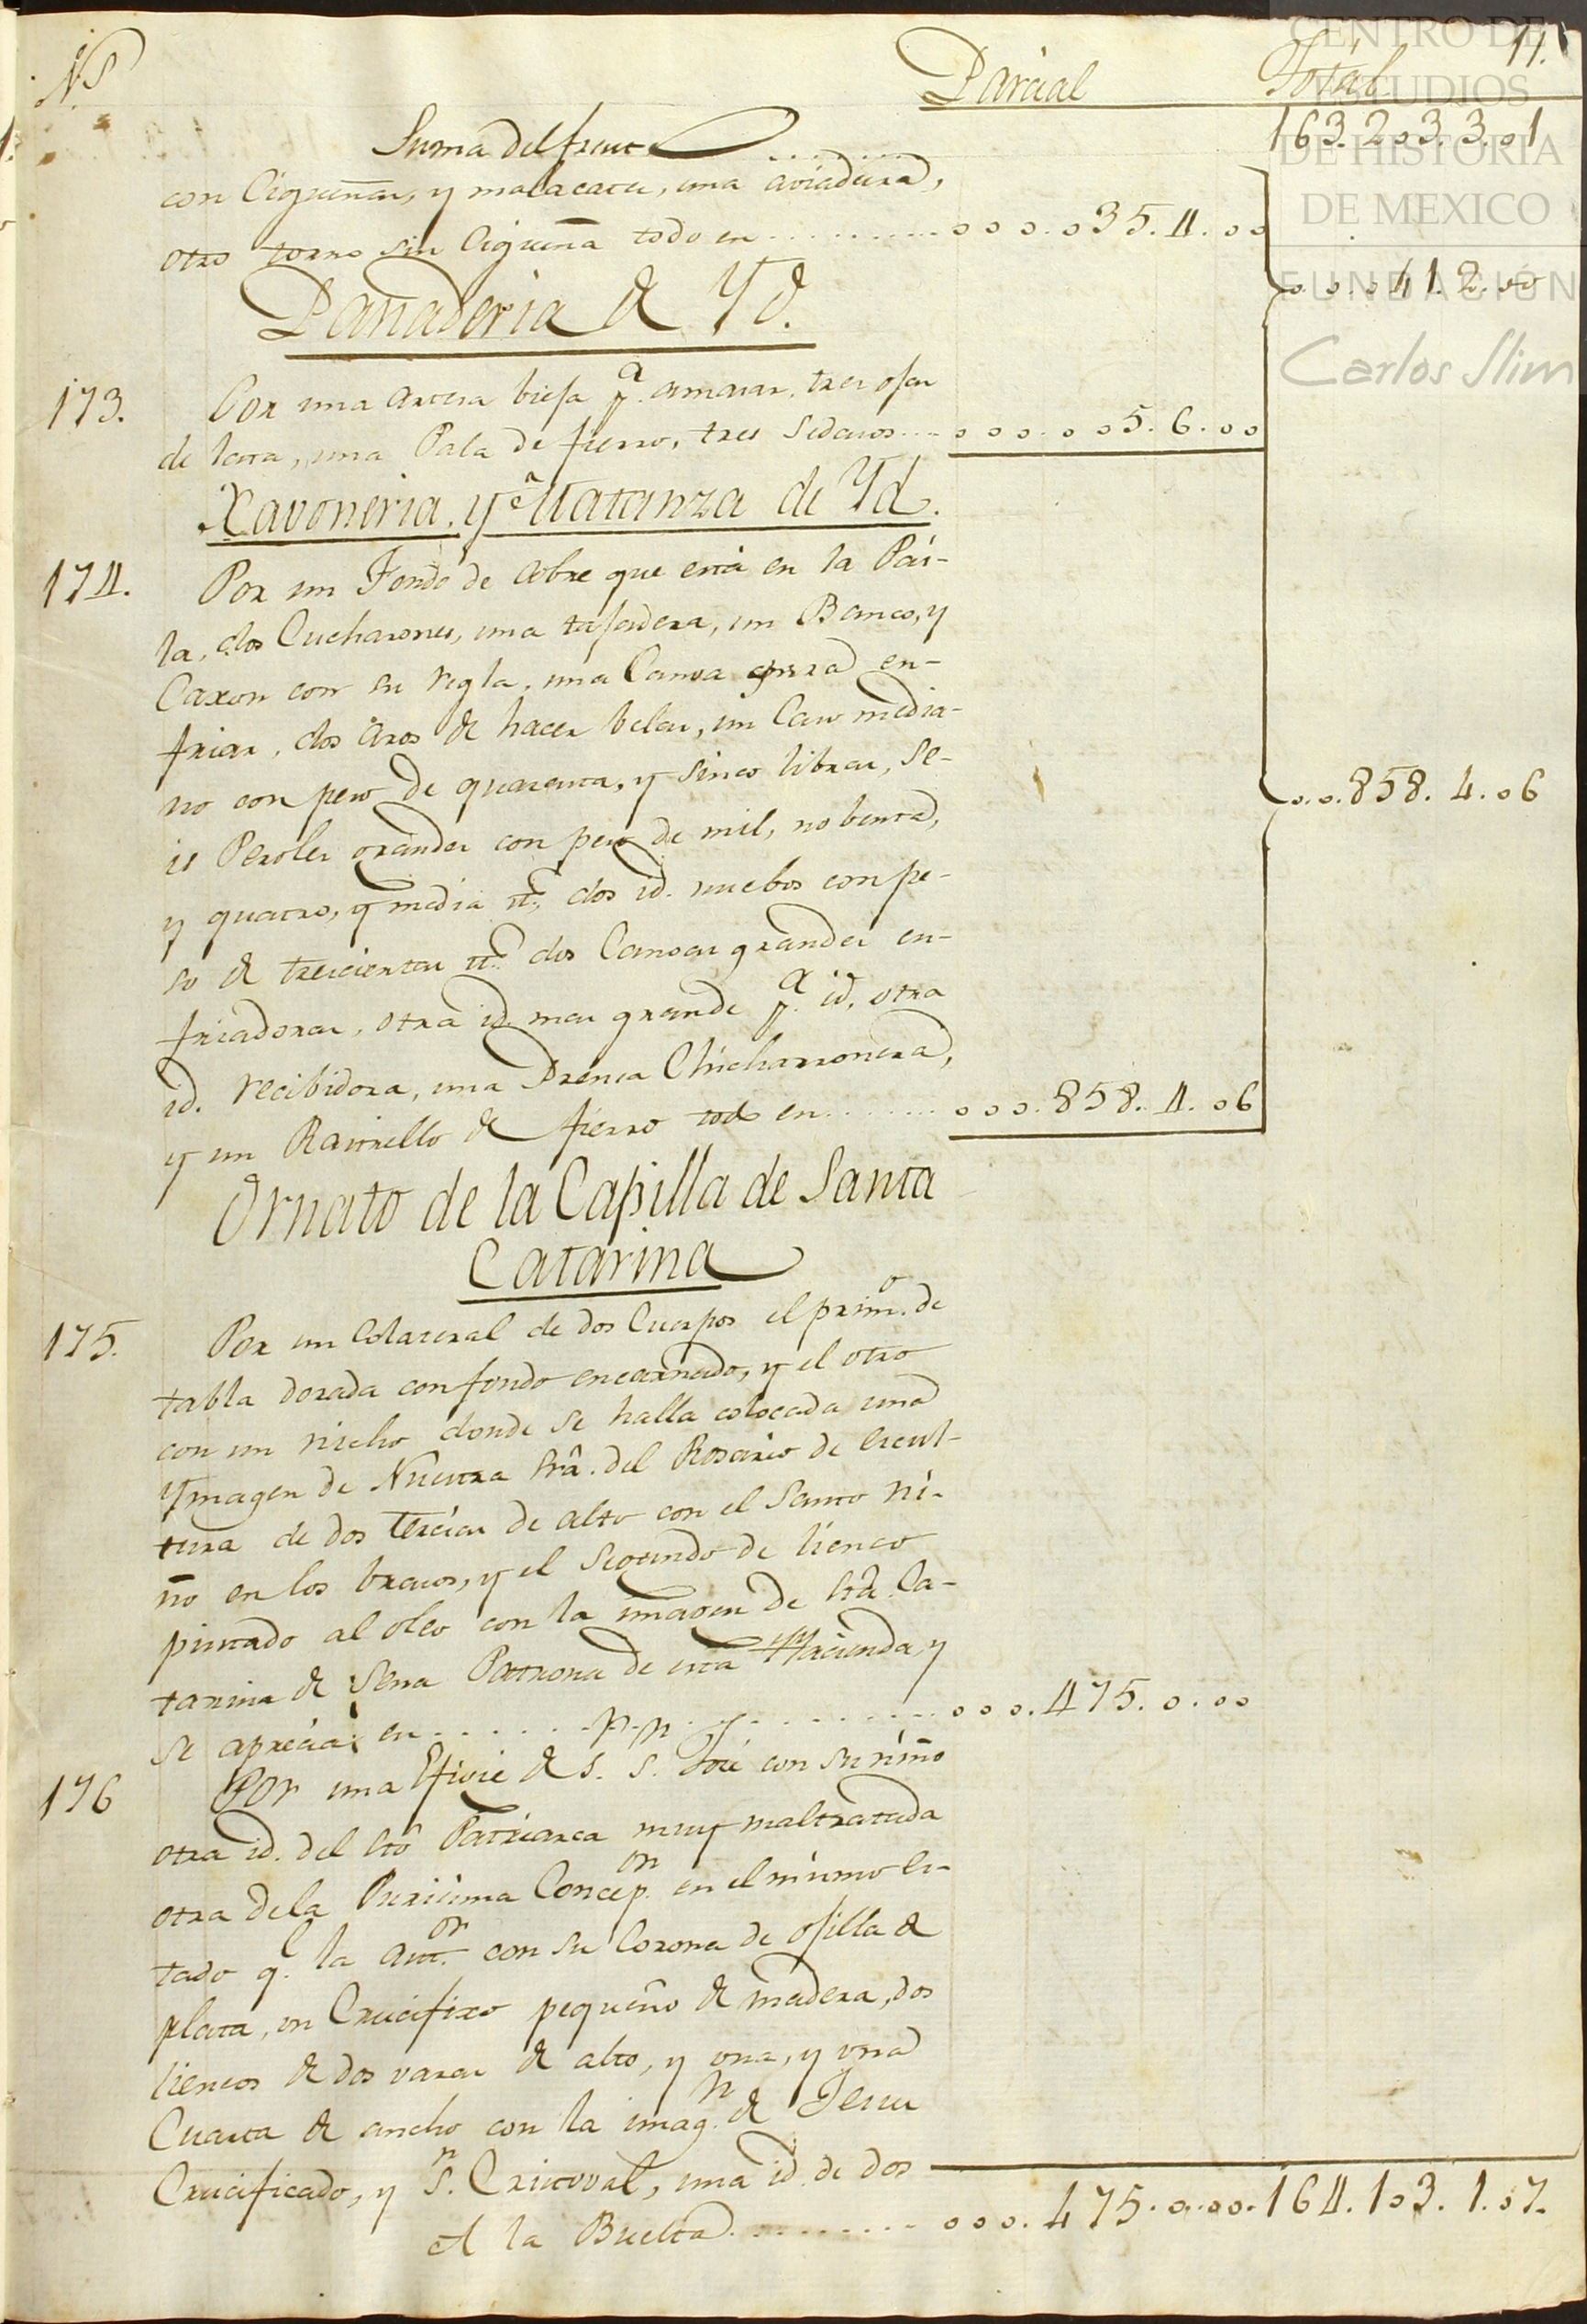 Ns. Parcial Total 11.
CENTRO DE
ESTUDIOS
DE HISTORIA
DE MEXICO
FUNDACIÓN
Carlos Slim
Suma del frente ........ 163.203.3.01
con Cigueñas, y malacates, una aviadura,
otro torno sin Cigueña todo en .......... 000.035.4.00
0.0.041.2.00
Panaderia de Yd.
173. Por una artesa biesa pa. amasar, tres ojas
de lata, una Pala de fierro, tres Sedasos .... 000.005.6.00
Xavoneria, y Matanza de Yd.
174. Por un Fondo de cobre que está en la Pai-
la, dos Cucharones, una tajadera, un Banco, y
Caxon con su regla, una Canoa para en-
friar, dos aros de hacer belas, un Caso media-
no con peso de quarenta, y sinco libras, se- 0.0.858.4.06
is Peroles grandes con peso de mil, nobenta,
y quatro, y media tt.s dos id. nuebos con pe-
so de trescientas tt.s dos Canoas grandes en-
friadoras, otra id. mas grande pa. id. otra
id. recibidora, una Prensa Chicharronera,
y un Rastrillo de fierro todo en ........ 000.858.4.06
Ornato de la Capilla de Santa
Catarina
175. Por un Colateral de dos Cuerpos el primo. de
tabla dorada con fondo encarnado, y el otro
con un nicho donde se halla colocada una
Ymagen de Nuestra Srâ. del Rosario de escul-
tura de dos tercias de alto con el Santo ni-
ño en los brasos, y el Segundo de lienso
pintado al oleo con la imagen de Stâ. Ca-
tarina de Sena Patrona de esta Hacienda, y
se aprecia en ........ 000.475.0.00
176 Por una Efigie de S. S. José con su niño
otra id. del Stô Patriarca muy maltratada
otra de la Purisima Concepon. en el mismo es-
tado ql. la antor. con su Corona de ojilla de
plata, un Crucifixo pequeño de madera, dos
liensos de dos varas de alto, y una, y una
Cuarta de ancho con la imagn. de Jesus
Crucificado, y Sn. Cristoval, una id. de dos
A la Buelta .......... 000.475.0.00.164.103.1.07.